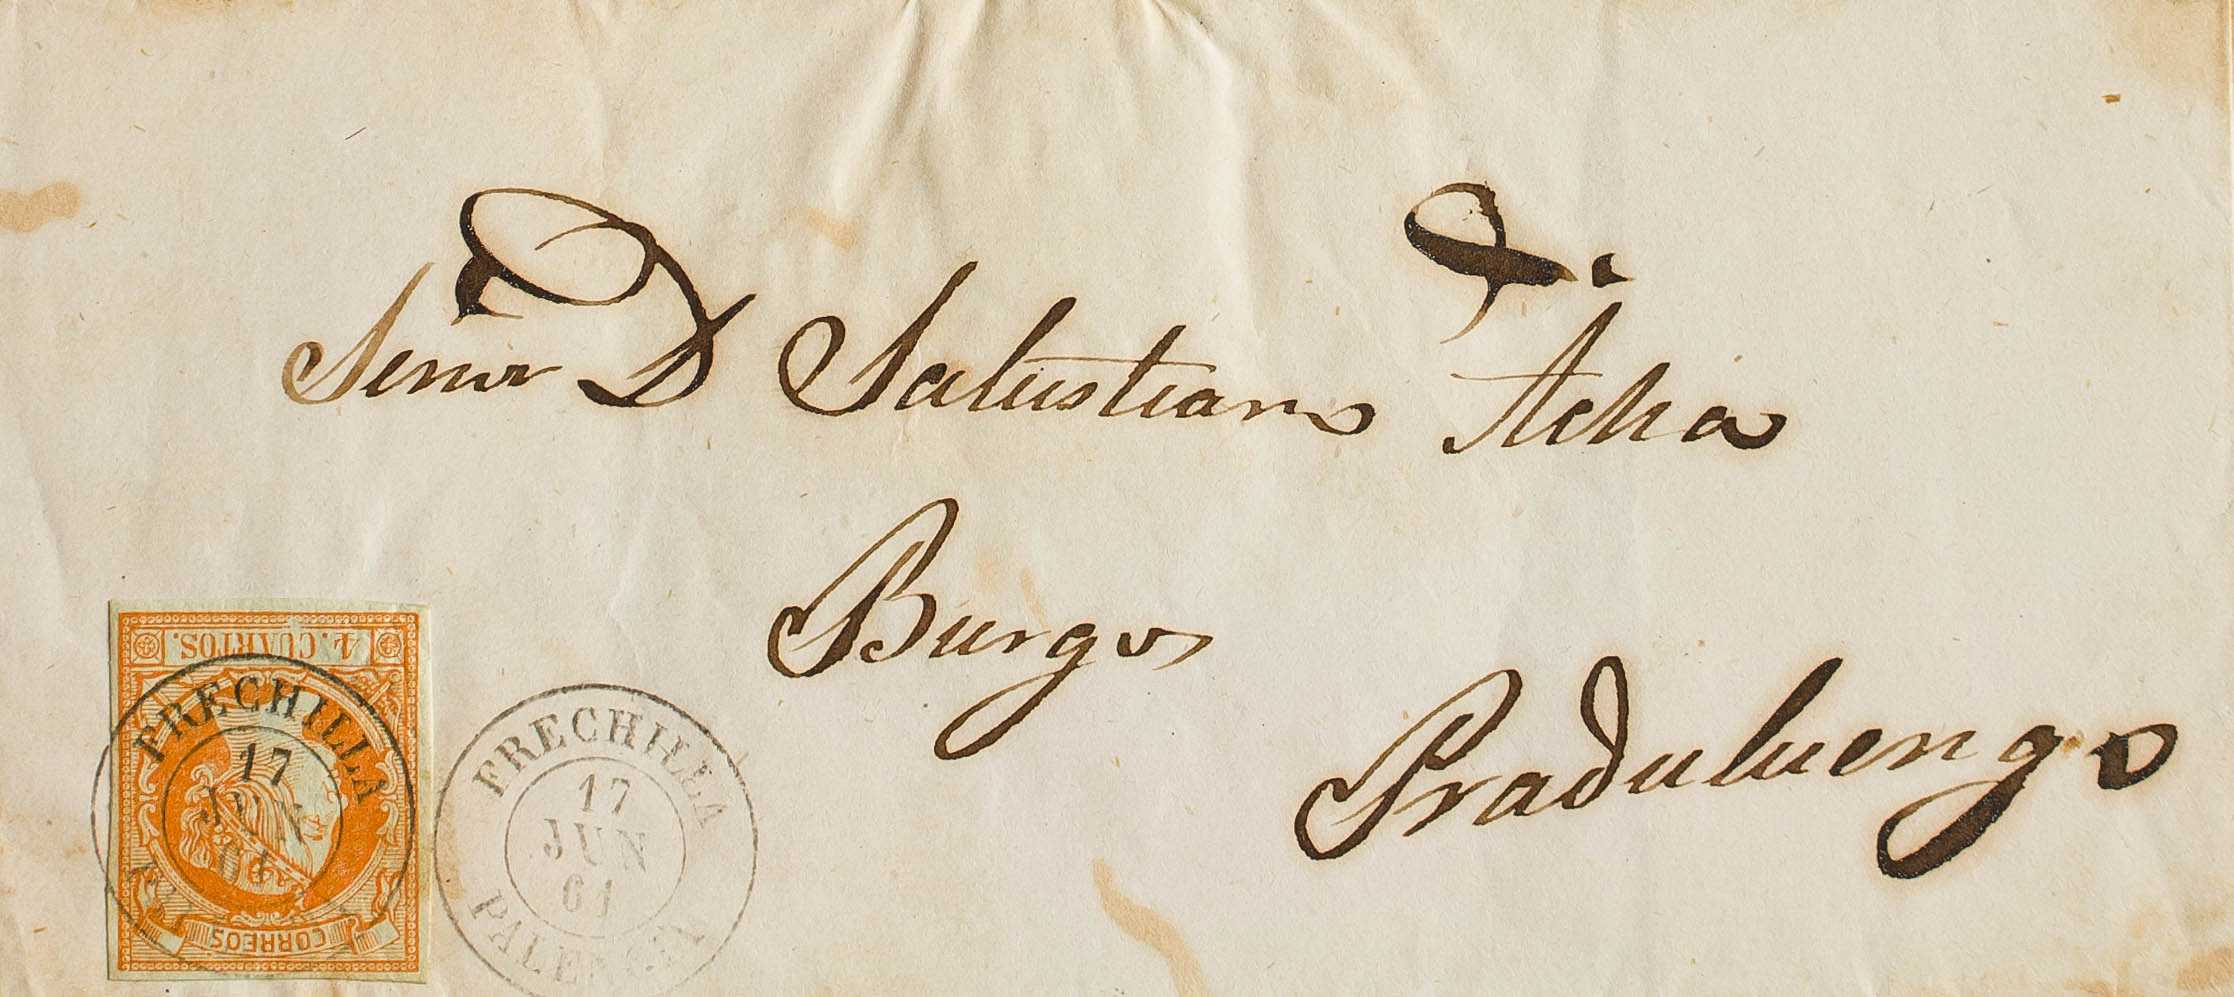 Señor D Salustiano Acha
Burgos
Pradoluengo
4. CUARTOS.
FRECHILLA
17
JUN
61
CORREOS
FRECHILLA
17
JUN
61
PALENCIA